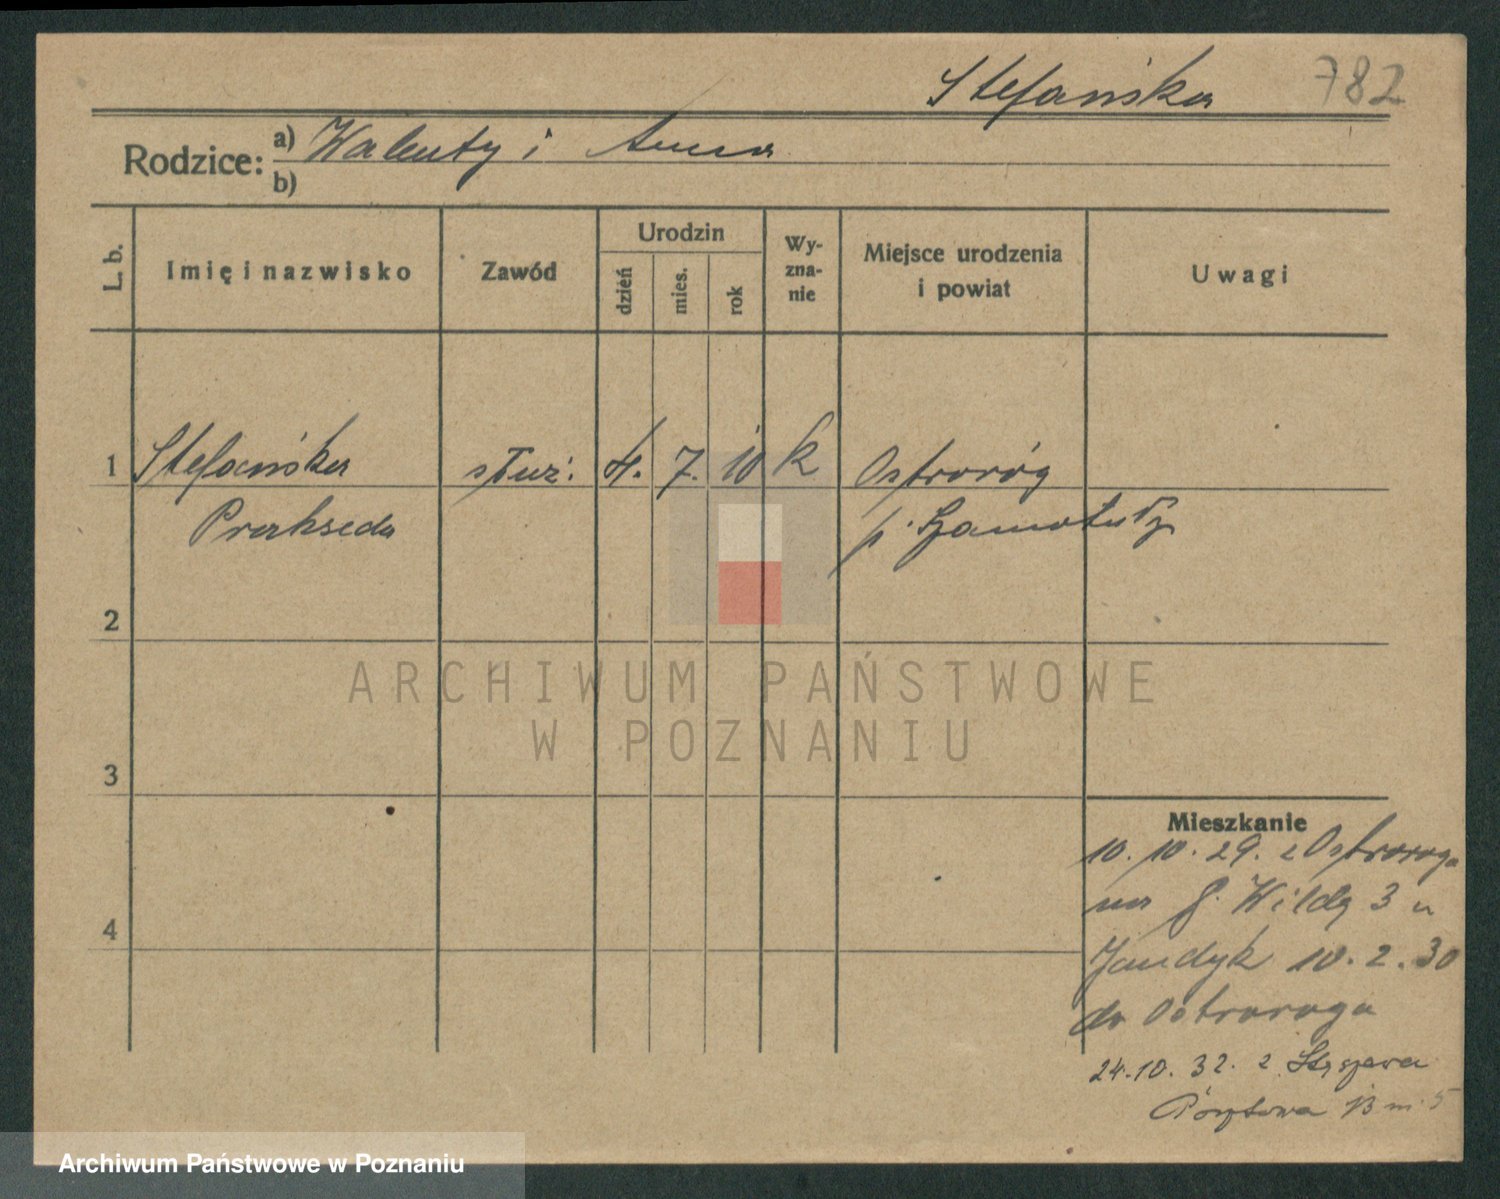 Stefańska 782
Rodzice: a) Walenty i Anna
b)
L. b.
Imię i nazwisko
Zawód
Urodzin
dzień
mies.
rok
Wy-
zna-
nie
Miejsce urodzenia
i powiat
Uwagi
1 Stefańska służ. 4. 7. 10 k Ostroróg
Prakseda p. Szamotuły
2
3
4
Mieszkanie
10. 10. 29. z Ostroroga
na G. Wildę 3 u
Jandyk 10. 2. 30
do Ostroroga
24.10. 32. z Stęszewa
13 m 5
ARCHIWUM PAŃSTWOWE
W POZNANIU
Archiwum Państwowe w Poznaniu